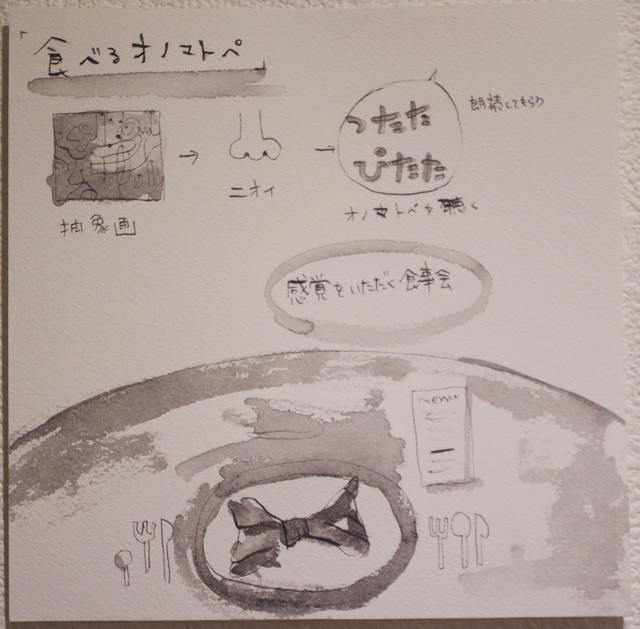 「食べるオノマトペ」
抽象画
ニオイ
つたた
ぴたた
朗読してもらう
オノマトペを聴く
感覚をいただく食事会
menu